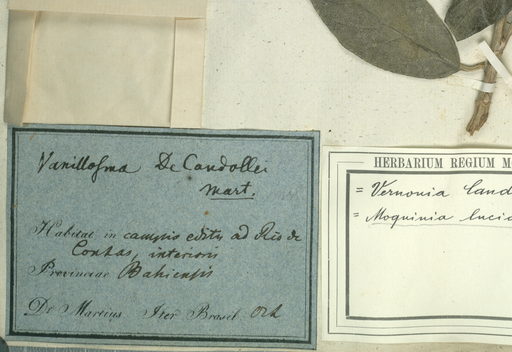 Vanillosma De Candollei
Mart.
Habitat in campis editis ad Rio de
Contas, interioris
Provinciae Bahiensis
Dr Martius Iter Brasil. Oct
HERBARIUM REGIUM M
= Vernonia Cand
= Moquinia lucid